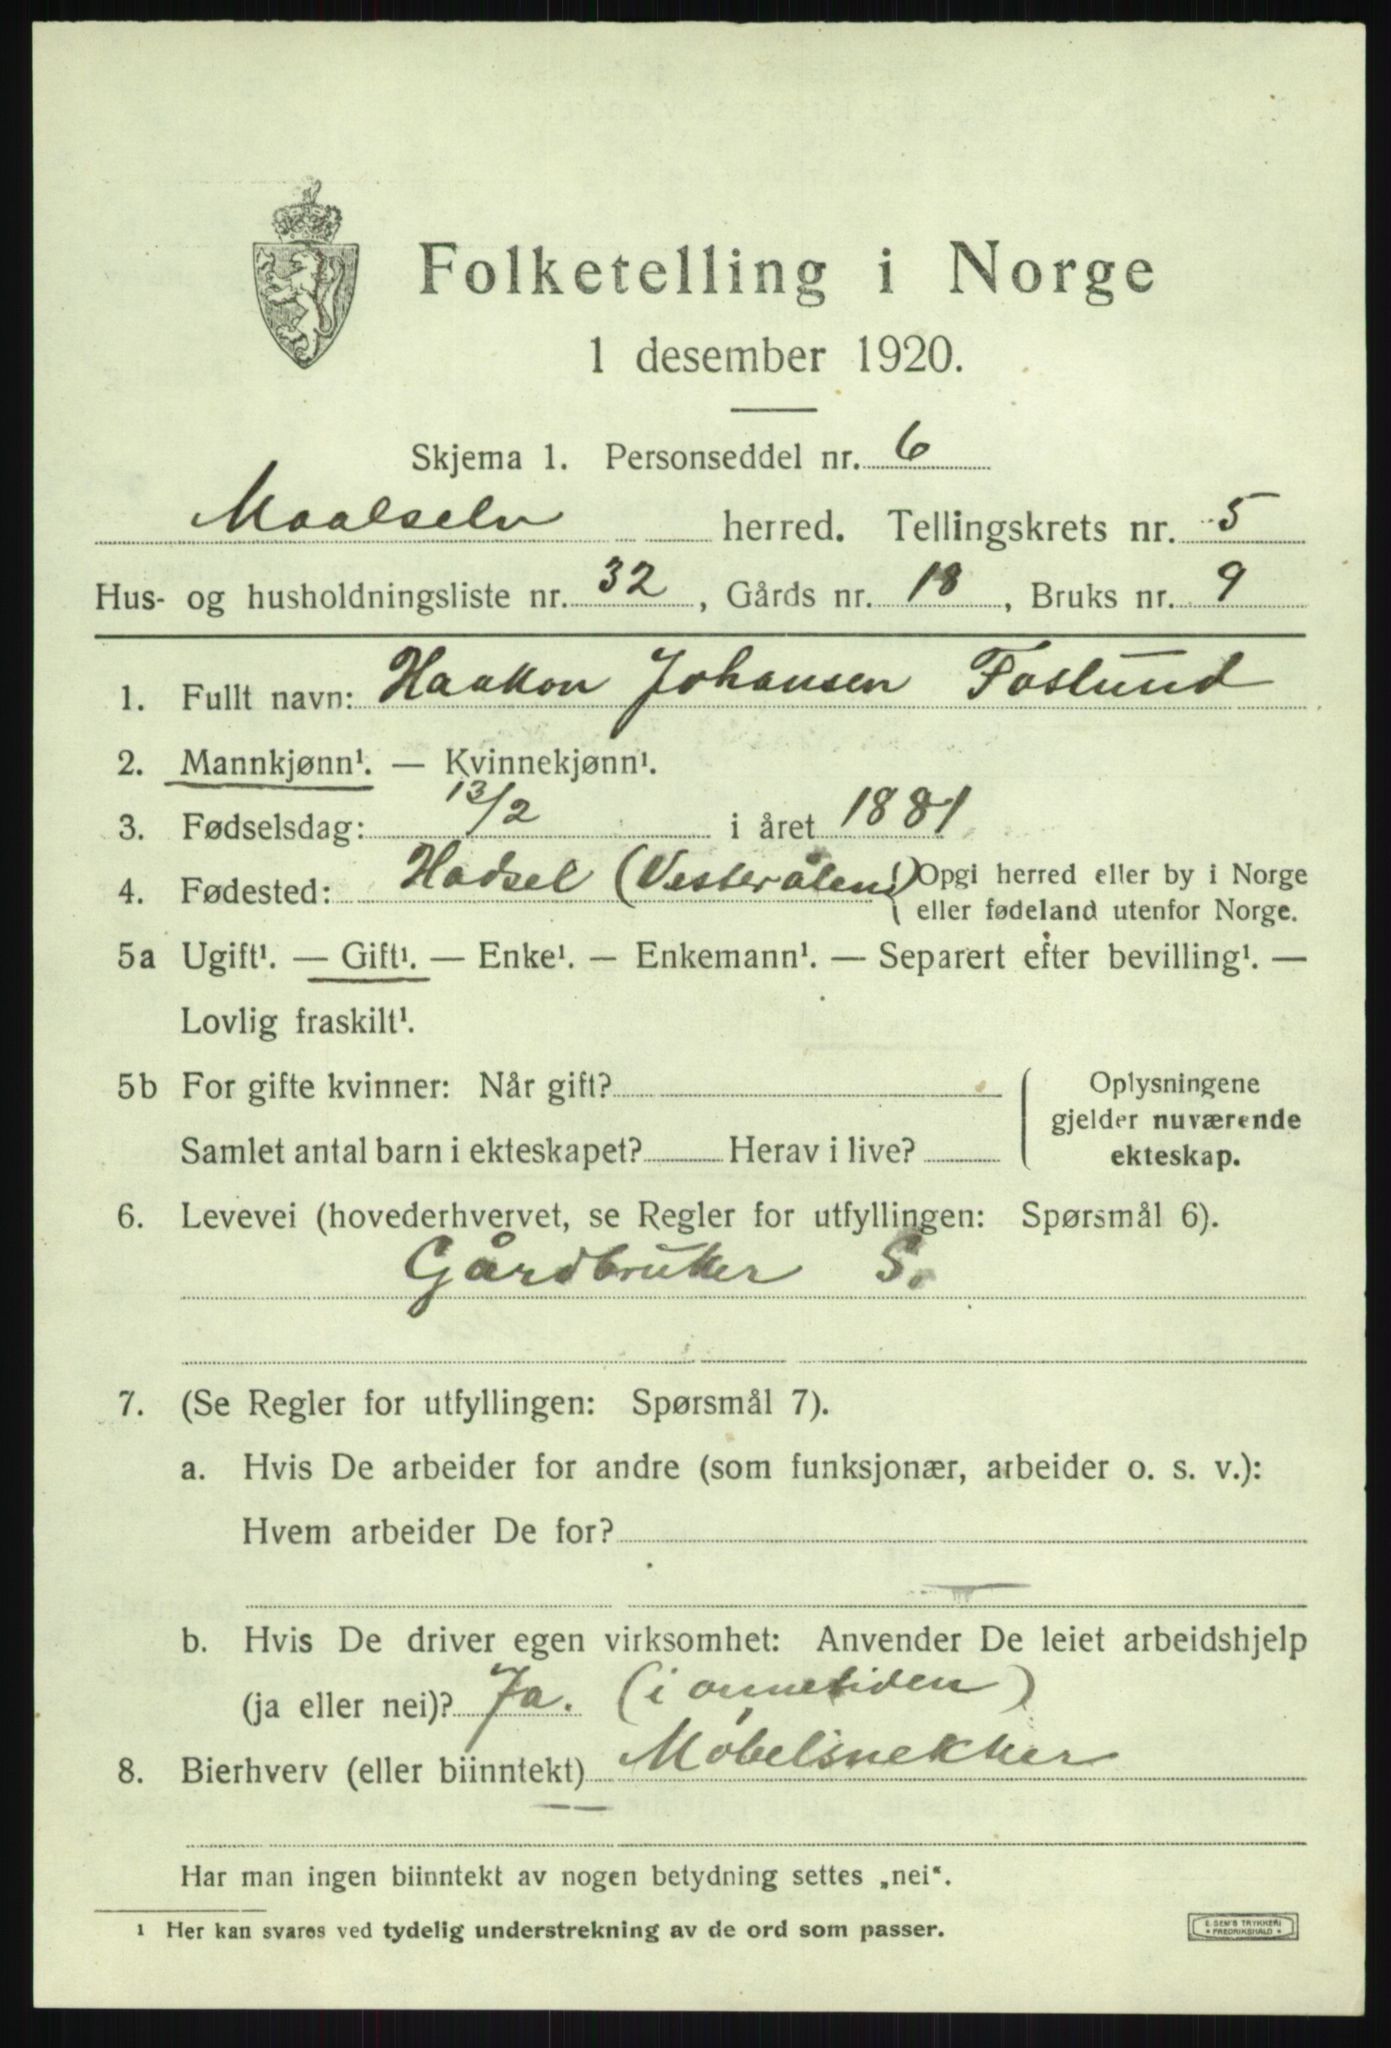 Folketelling i Norge
1 desember 1920.
Skjema 1. Personseddel nr. 6
Maalselv herred. Tellingskrets nr. 5
Hus- og husholdningsliste nr. 32, Gårds nr. 18, Bruks nr. 9
1. Fullt navn: Haakon Johansen Foslund
2. Mannkjønn¹. — Kvinnekjønn¹.
3. Fødselsdag: 13/2 i året 1881
4. Fødested: Hadsel (Vesterålen) Opgi herred eller by i Norge
eller fødeland utenfor Norge.
5a Ugift¹. — Gift¹. — Enke¹. — Enkemann¹. — Separert efter bevilling¹. —
Lovlig fraskilt¹.
5b For gifte kvinner: Når gift?
Samlet antal barn i ekteskapet? Herav i live?
Oplysningene
gjelder nuværende
ekteskap.
6. Levevei (hovederhvervet, se Regler for utfyllingen: Spørsmål 6).
Gårdbruker S.
7. (Se Regler for utfyllingen: Spørsmål 7).
a. Hvis De arbeider for andre (som funksjonær, arbeider o. s. v.):
Hvem arbeider De for?
b. Hvis De driver egen virksomhet: Anvender De leiet arbeidshjelp
(ja eller nei)? Ja. (i onnetiden)
8. Bierhverv (eller biinntekt) Møbelsnekker
Har man ingen biinntekt av nogen betydning settes „nei“.
¹ Her kan svares ved tydelig understrekning av de ord som passer.
E. SEM'S TRYKKERI
FREDRIKSHALD